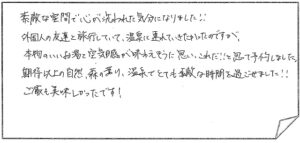 素敵な空間で心が洗われた気分になりました!!
外国人の友達と旅行していて、温泉に連れていきたかったのですが、
本物のいいお湯と空気感が味わえそうに思い、これだ!!と思って予約しました。
期待以上の自然、森の薫り、温泉でとても素敵な時間を過ごせました!!
ご飯も美味しかったです!